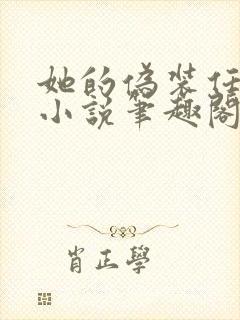 她的伪装任
小说笔趣阁
肖正学